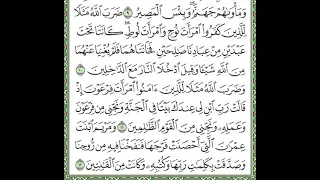 وَمَأْوَىٰهُمْ جَهَنَّمُ وَبِئْسَ ٱلْمَصِيرُ ٩ ضَرَبَ ٱللَّهُ مَثَلًا
لِّلَّذِينَ كَفَرُوا۟ ٱمْرَأَتَ نُوحٍ وَٱمْرَأَتَ لُوطٍ كَانَتَا تَحْتَ
عَبْدَيْنِ مِنْ عِبَادِنَا صَٰلِحَيْنِ فَخَانَتَاهُمَا فَلَمْ يُغْنِيَا عَنْهُمَا
مِنَ ٱللَّهِ شَيْـًٔا وَقِيلَ ٱدْخُلَا ٱلنَّارَ مَعَ ٱلدَّٰخِلِينَ ١٠
وَضَرَبَ ٱللَّهُ مَثَلًا لِّلَّذِينَ ءَامَنُوا۟ ٱمْرَأَتَ فِرْعَوْنَ إِذْ
قَالَتْ رَبِّ ٱبْنِ لِى عِندَكَ بَيْتًا فِى ٱلْجَنَّةِ وَنَجِّنِى مِن فِرْعَوْنَ
وَعَمَلِهِۦ وَنَجِّنِى مِنَ ٱلْقَوْمِ ٱلظَّٰلِمِينَ ١١ وَمَرْيَمَ ٱبْنَتَ
عِمْرَٰنَ ٱلَّتِىٓ أَحْصَنَتْ فَرْجَهَا فَنَفَخْنَا فِيهِ مِن رُّوحِنَا
وَصَدَّقَتْ بِكَلِمَٰتِ رَبِّهَا وَكُتُبِهِۦ وَكَانَتْ مِنَ ٱلْقَٰنِتِينَ ١٢